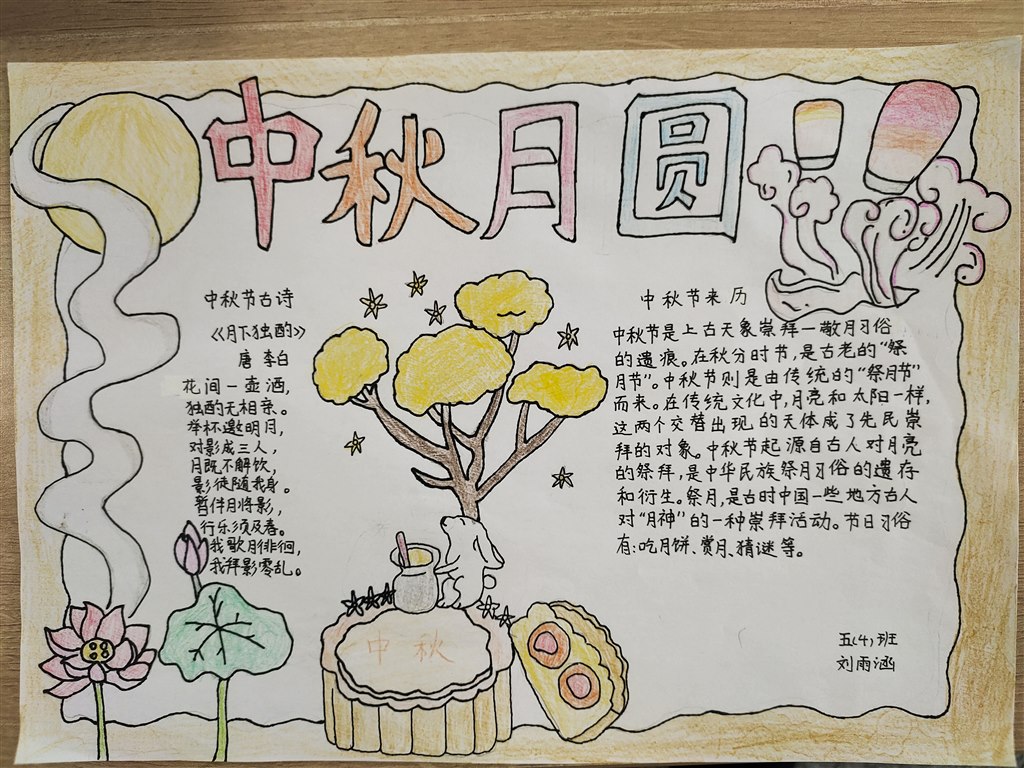 中秋月圆
中秋节古诗
《月下独酌》
唐 李白
花间一壶酒,
独酌无相亲。
举杯邀明月,
对影成三人,
月既不解饮,
影徒随我身。
暂伴月将影,
行乐须及春。
我歌月徘徊,
我拜影零乱。
中秋节来历
中秋节是上古天象崇拜一敬月习俗
的遗痕。在秋分时节,是古老的“祭
月节”。中秋节则是由传统的“祭月节”
而来。在传统文化中,月亮和太阳一样,
这两个交替出现的天体成了先民崇
拜的对象。中秋节起源自古人对月亮
的祭拜,是中华民族祭月习俗的遗存
和衍生。祭月,是古时中国一些地方古人
对“月神”的一种崇拜活动。节日习俗
有:吃月饼、赏月、猜谜等。
中秋
五(4)班
刘雨涵